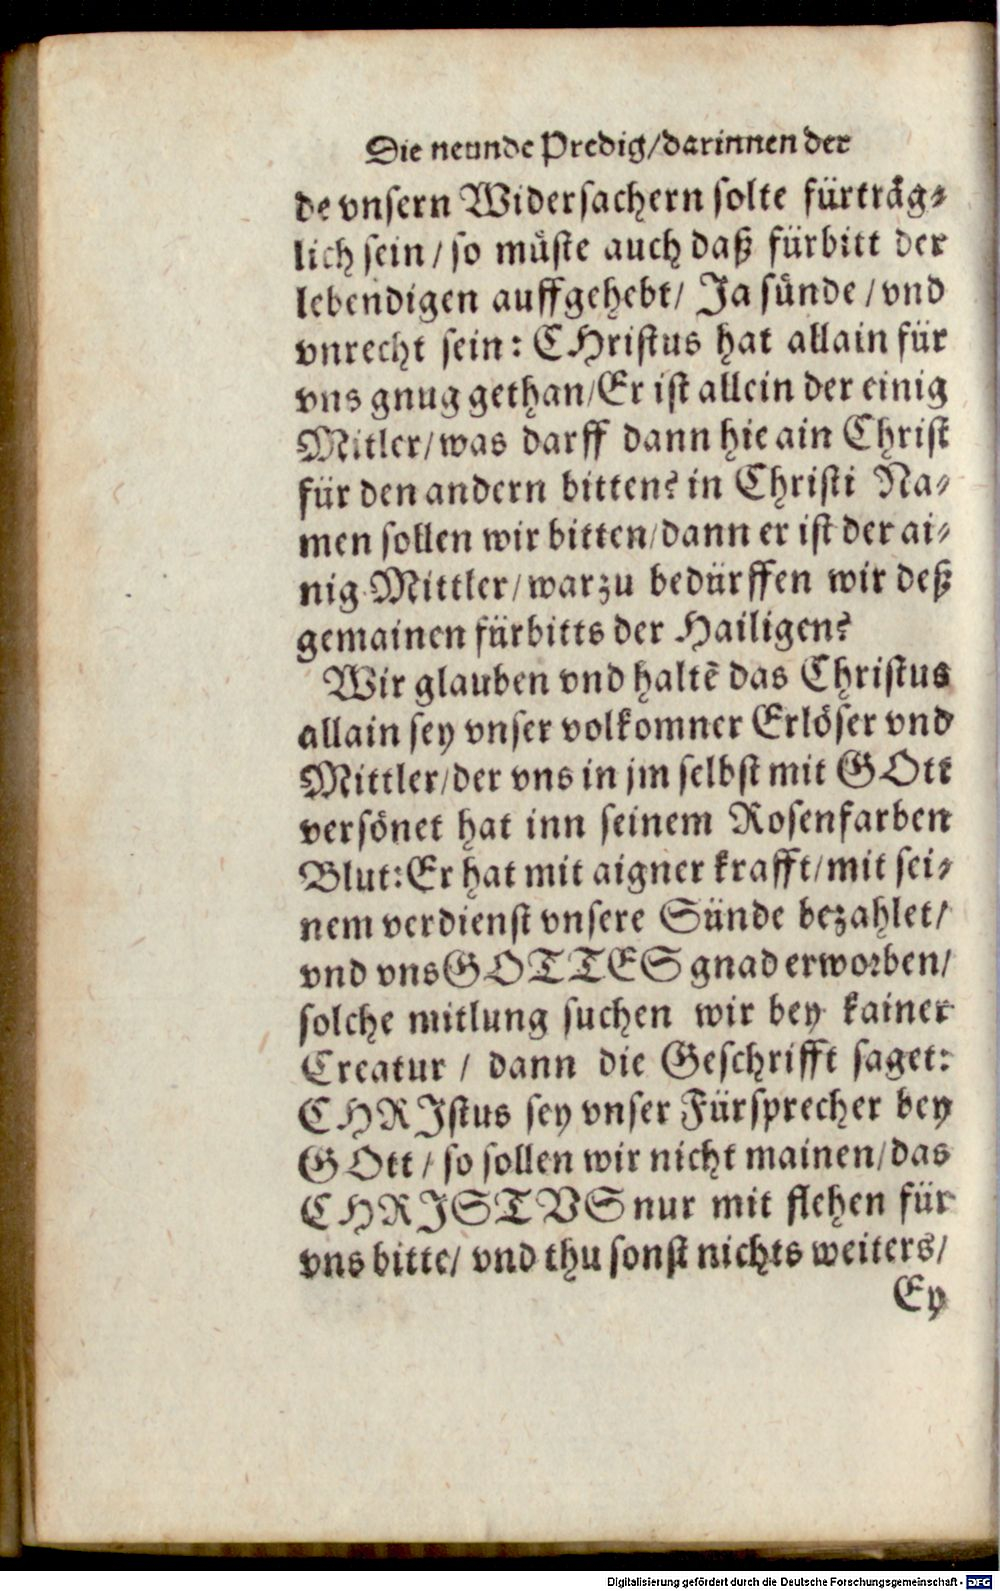 Die neunde Predig/darinnen der
de vnsern Widersachern solte fürträg⸗
lich sein/so müste auch daß fürbitt der
lebendigen auffgehebt/ Ja sünde/vnd
vnrecht sein: CHristus hat allain für
vns gnug gethan/Er ist allein der einig
Mitler/was darff dann hie ain Christ
für den andern bitten? in Christi Na⸗
men sollen wir bitten/dann er ist der ai⸗
nig Mittler/warzu bedürffen wir deß
gemainen fürbitts der Hailigen?
Wir glauben vnd haltē das Christus
allain sey vnser volkomner Erlöser vnd
Mittler/der vns in jm selbst mit GOtt
versönet hat inn seinem Rosenfarben
Blut:Er hat mit aigner krafft/mit sei⸗
nem verdienst vnsere Sünde bezahlet/
vnd vns GOTTES gnad erworben/
solche mitlung suchen wir bey kainer
Creatur / dann die Geschrifft saget:
CHRIstus sey vnser Fürsprecher bey
GOtt/so sollen wir nicht mainen/das
CHRISTVS nur mit flehen für
vns bitte/ vnd thu sonst nichts weiters/
Ey
Digitalisierung gefördert durch die Deutsche Forschungsgemeinschaft - DFG